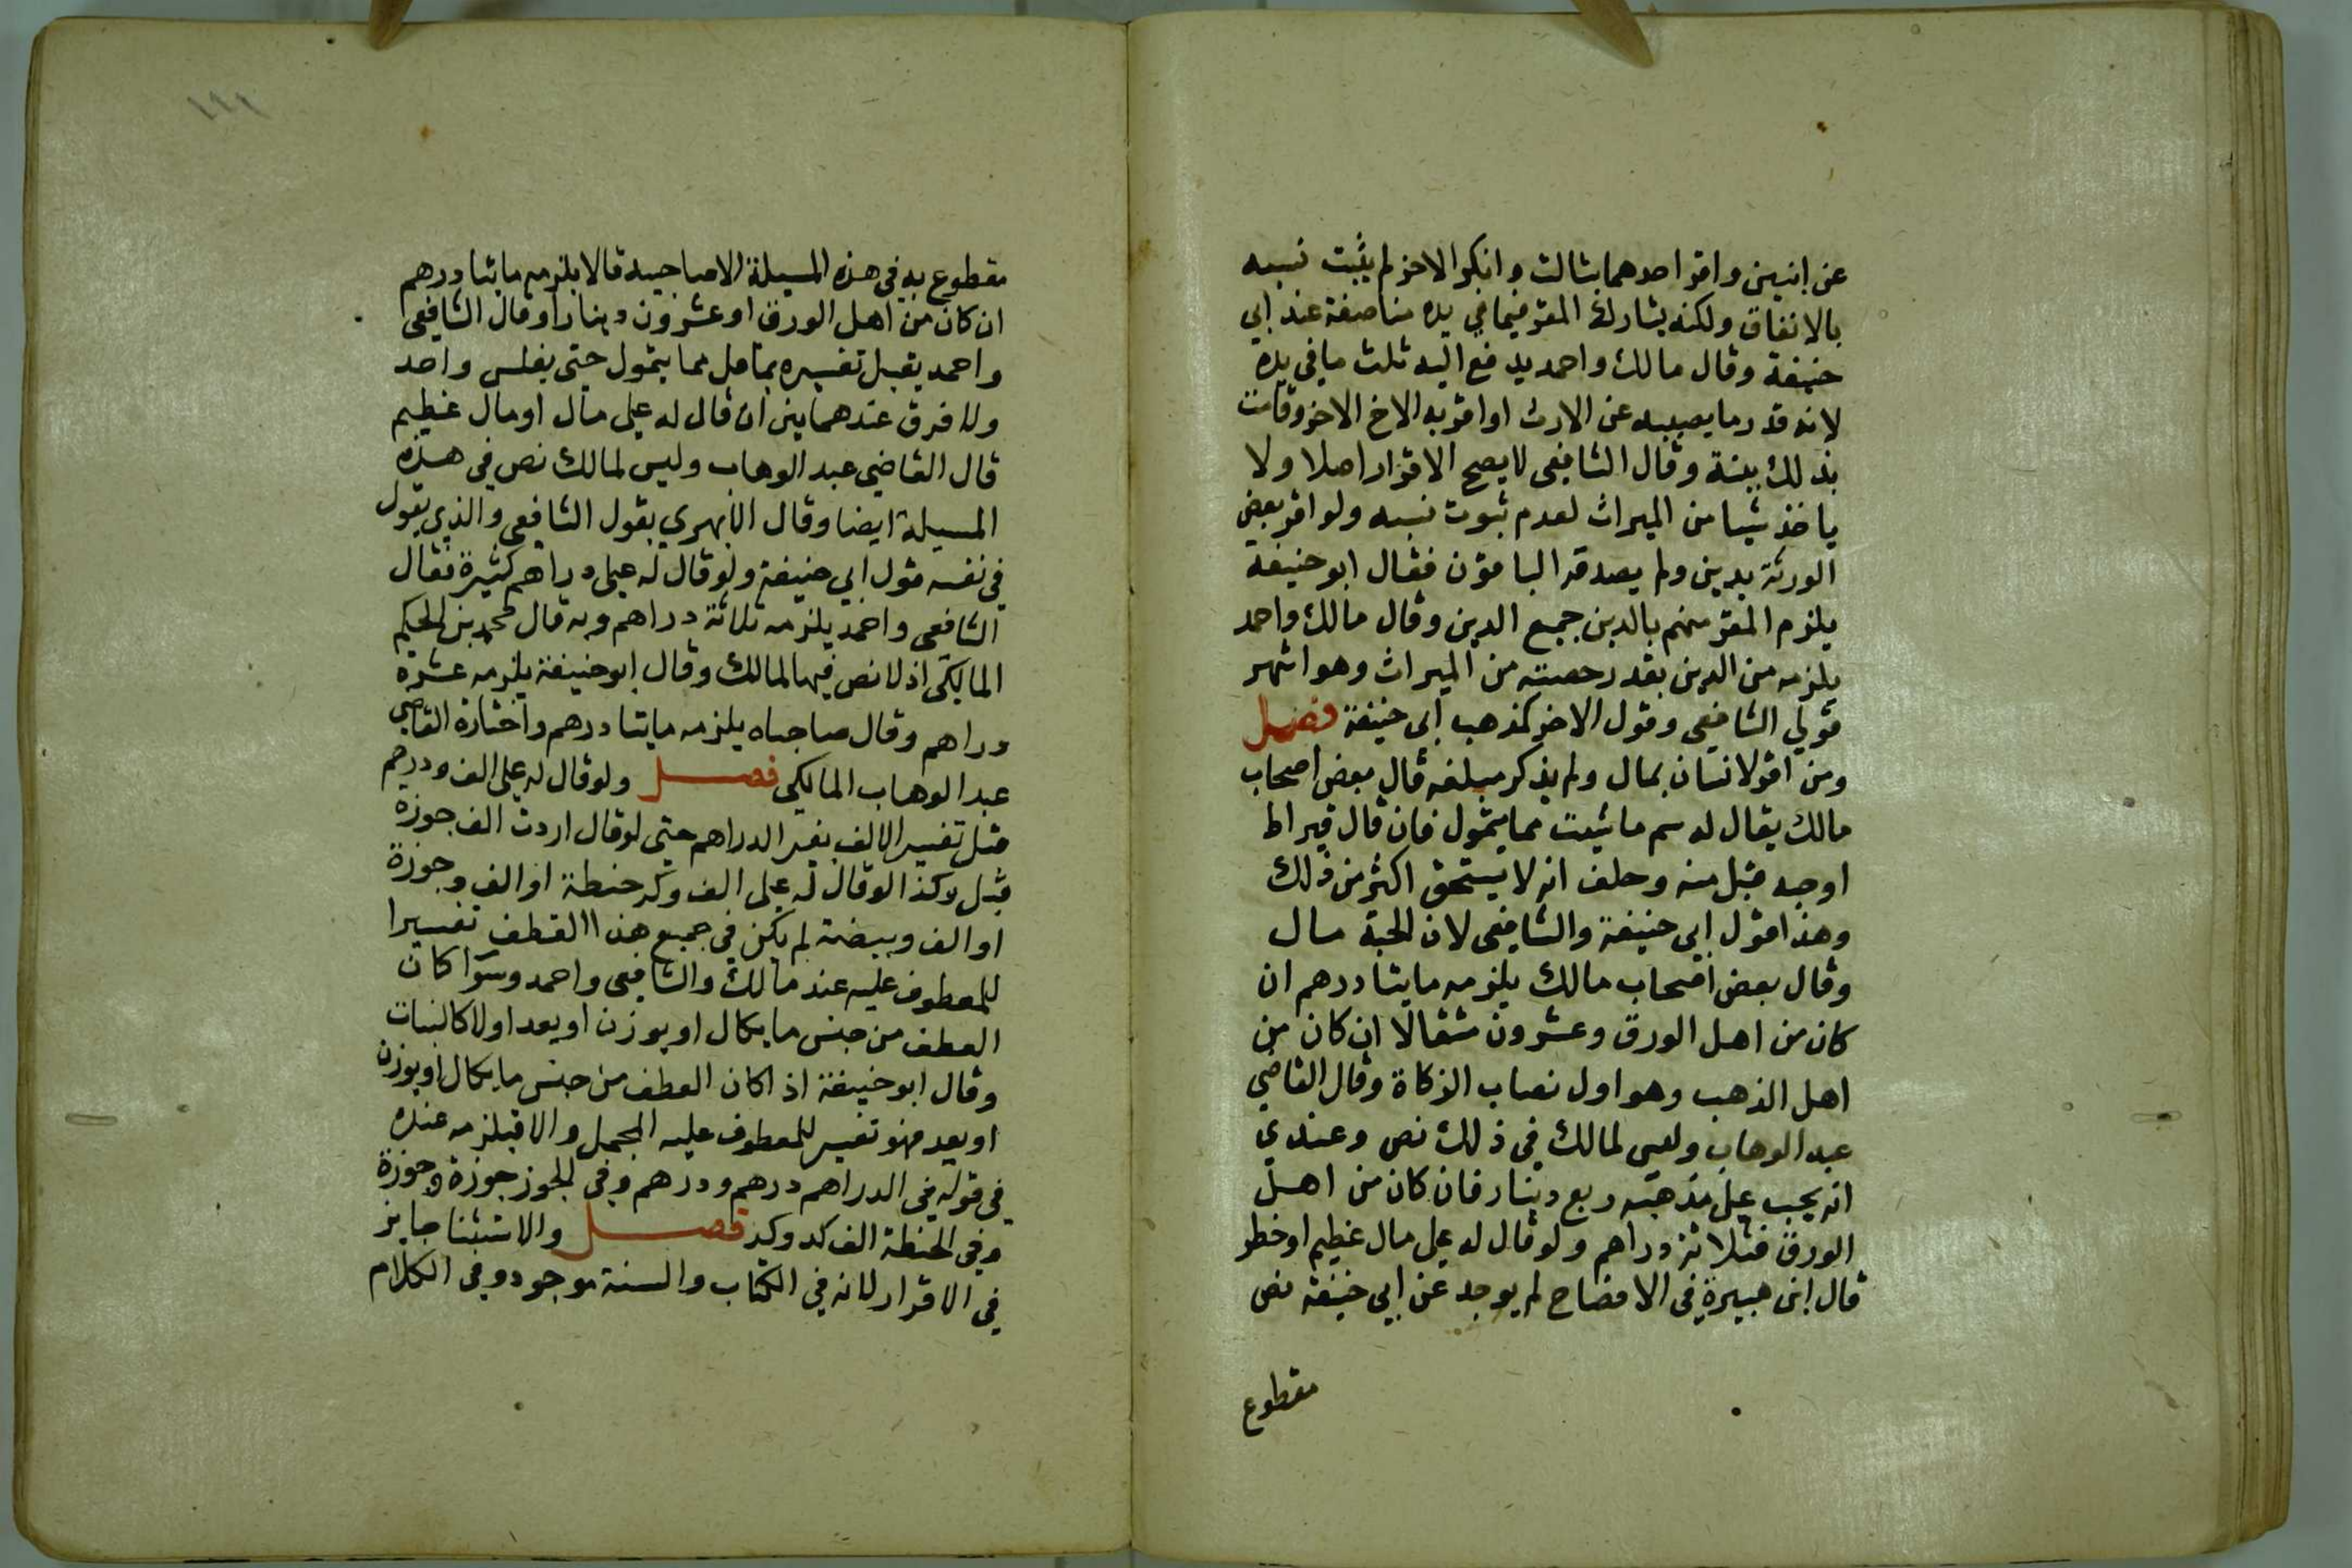 عن ابنين واقر احدهما بثالث وانكر الاخر لم يثبت نسبه
بالاتفاق ولكنه يشارك المقر فيما في يده مناصفة عند ابي
حنيفة وقال مالك واحمد يدفع اليه ثلث ما في يده
لانه قدر ما يصيبه عن الارث او اقر به الاخ الاخر وقامت
بذلك بينة وقال الشافعي لا يصح الاقرار اصلا ولا
ياخذ شيا من الميراث لعدم ثبوت نسبه ولو اقر بعض
الورثة بدين ولم يصدقه الباقون فقال ابو حنيفة
يلزم المقر منهم بالدين جميع الدين وقال مالك واحمد
يلزمه من الدين بقدر حصته من الميراث وهو اشهر
قولي الشافعي وقول الاخر كمذهب ابي حنيفة فصل
ومن اقر لانسان بمال ولم يذكر مبلغه قال بعض اصحاب
مالك يقال له سم ما شيت مما يتمول فان قال قيراط
او حبه قبل منه وحلف انه لا يستحق اكثر من ذلك
وهذا قول ابي حنيفة والشافعي لان الحبة مال
وقال بعض اصحاب مالك يلزمه مايتا درهم ان
كان من اهل الورق وعشرون مثقالا ان كان من
اهل الذهب وهو اول نصاب الزكاة وقال القاضي
عبد الوهاب وليس لمالك في ذلك نص وعندي
انه يجب على مذهبه ربع دينار فان كان من اهل
الورق فثلاثة دراهم ولو قال له علي مال عظيم او خطر
قال ابن هبيرة في الافصاح لم يوجد عن ابي حنيفة نص
مقطوع
١٩٩
مقطوع به في هذه المسيلة الا صاحبيه قالا يلزمه مائتا درهم
ان كان من اهل الورق او عشرون دينارا وقال الشافعي
واحمد يقبل تفسيره بما قل مما يتمول حتى بفلس واحد
ولا فرق عندهما بين ان قال له علي مال او مال عظيم
قال القاضي عبد الوهاب وليس لمالك نص في هذه
المسيلة ايضا وقال الابهري بقول الشافعي والذي يقول
في نفسه قول ابي حنيفة ولو قال له علي دراهم كثيرة فقال
الشافعي واحمد يلزمه ثلاثة دراهم وبه قال محمد بن الحكم
المالكي اذ لا نص فيها لمالك وقال ابو حنيفة يلزمه عشرة
دراهم وقال صاحباه يلزمه مايتا درهم واختاره القاضي
عبد الوهاب المالكي فصل ولو قال له علي الف ودرهم
قبل تفسير الالف بغير الدراهم حتى لو قال اردت الف جوزة
قبل وكذا لو قال له علي الف وكر حنطة او الف وجوزة
او الف وبيضة لم يكن في جميع هذا القطف تفسيرا
للمعطوف عليه عند مالك والشافعي واحمد وسوا كان
العطف من جنس ما يكال او يوزن او يعد اولا كالنبات
وقال ابو حنيفة اذا كان العطف من جنس ما يكال او يوزن
او يعد فهو تفسير للمعطوف عليه المجمل والا فيلزمه عنده
في قوله في الدراهم درهم ودرهم وفي الجوز جوزة وجوزة
وفي الحنطة الف كر وكر فصل والاستثنا جايز
في الاقرار لانه في الكتاب والسنة موجود وفي الكلام